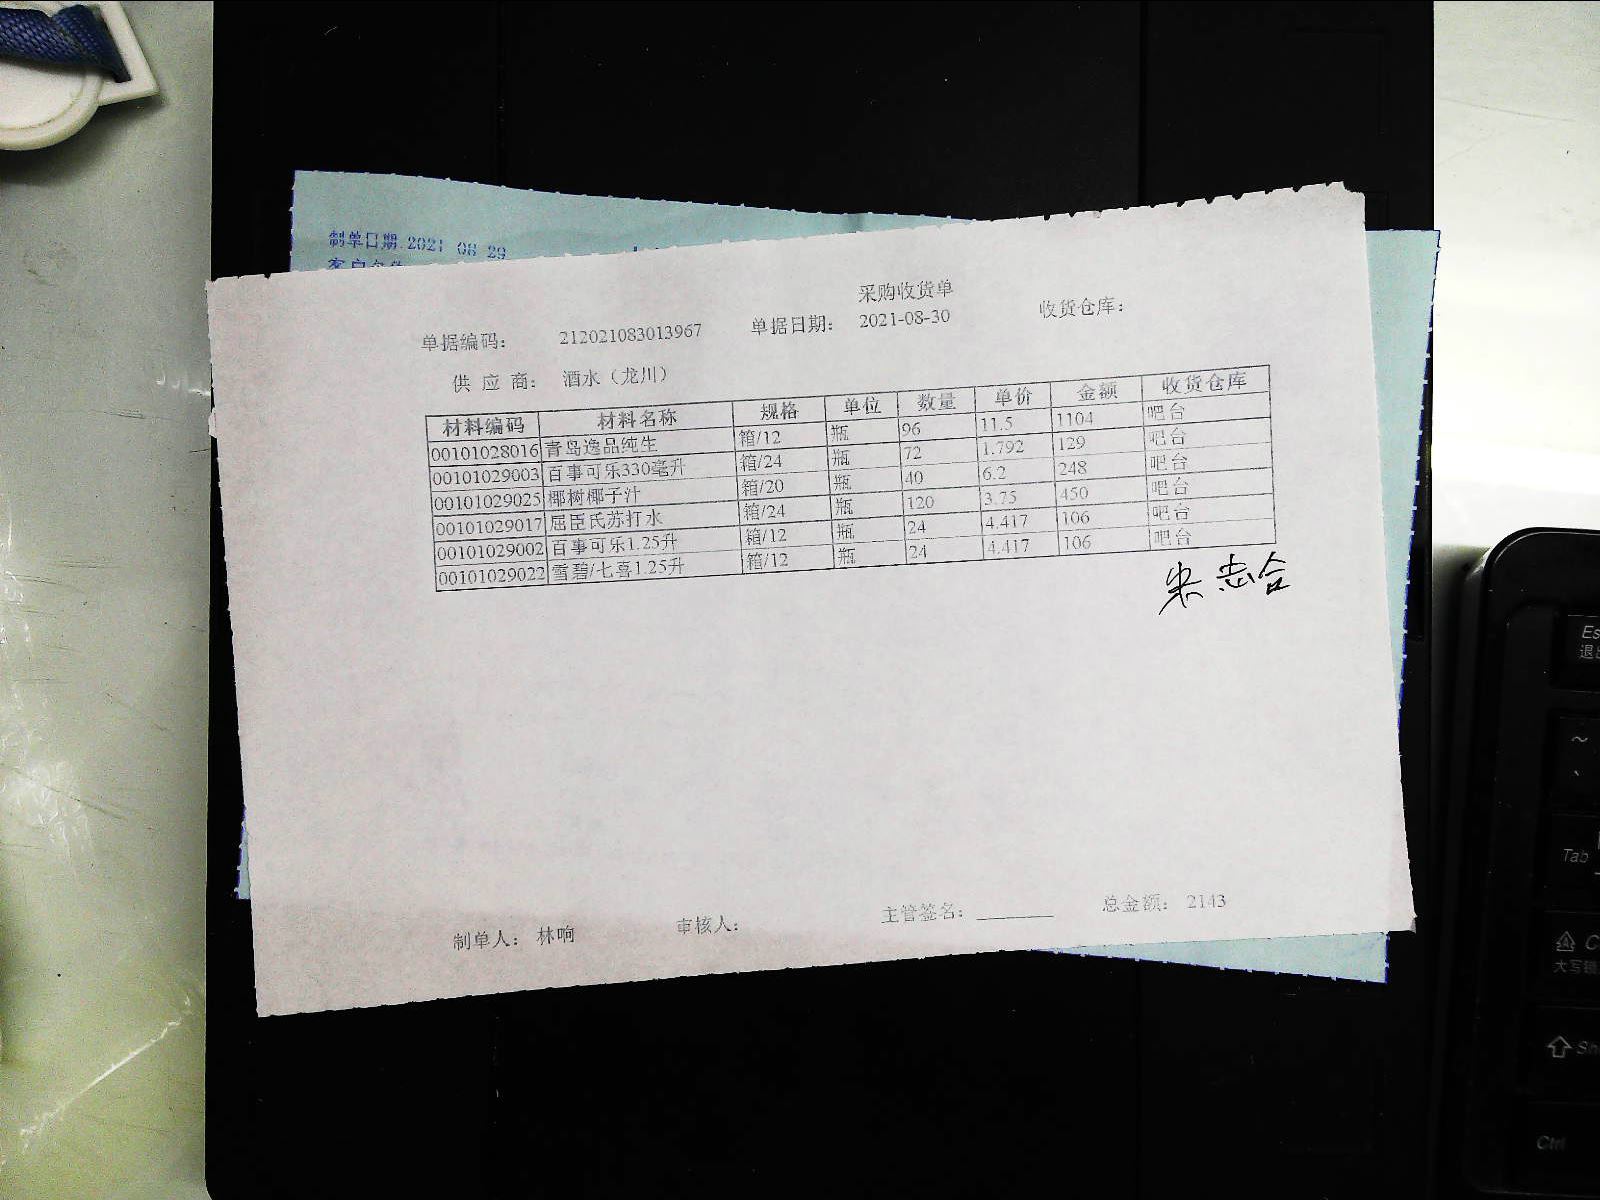 制单日期:2021-08-29
采购收货单
单据编码: 212021083013967 单据日期: 2021-08-30 收货仓库:
供 应 商: 酒水（龙川）
材料编码 材料名称 规格 单位 数量 单价 金额 收货仓库
00101028016 青岛逸品纯生 箱/12 瓶 96 11.5 1104 吧台
00101029003 百事可乐330毫升 箱/24 瓶 72 1.792 129 吧台
00101029025 椰树椰子汁 箱/20 瓶 40 6.2 248 吧台
00101029017 屈臣氏苏打水 箱/24 瓶 120 3.75 450 吧台
00101029002 百事可乐1.25升 箱/12 瓶 24 4.417 106 吧台
00101029022 雪碧/七喜1.25升 箱/12 瓶 24 4.417 106 吧台
制单人: 林响 审核人: 主管签名: 总金额: 2143
Tab
Ctrl